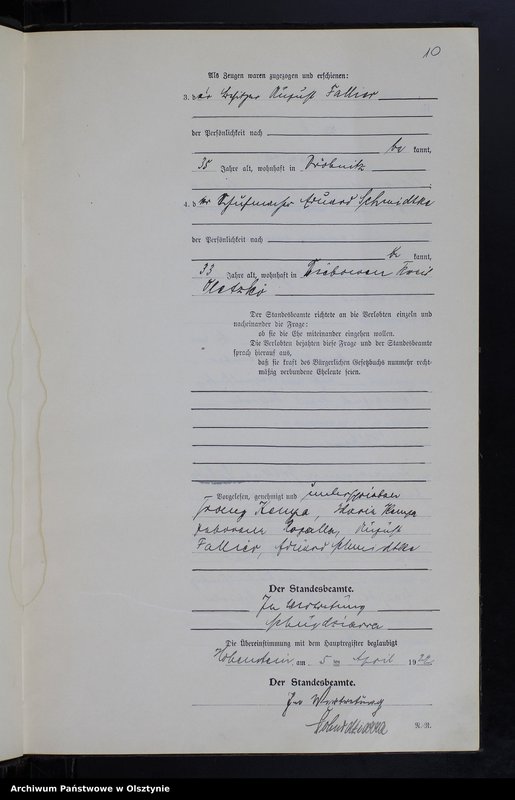 10
Als Zeugen waren zugezogen und erschienen:
3. der Besitzer August Fallier
der Persönlichkeit nach
be kannt,
35 Jahre alt, wohnhaft in
4. der Schuhmacher Eduard Schmidtke
der Persönlichkeit nach
be kannt,
33 Jahre alt, wohnhaft in Kreis
Oletzko
Der Standesbeamte richtete an die Verlobten einzeln und
nacheinander die Frage:
ob sie die Ehe miteinander eingehen wollen.
Die Verlobten bejahten diese Frage und der Standesbeamte
sprach hierauf aus,
daß sie kraft des Bürgerlichen Gesetzbuchs nunmehr recht-
mäßig verbundene Eheleute seien.
Vorgelesen, genehmigt und unterschrieben
Kempa, Maria Kempa
geborene August
Fallier, Eduard Schmidtke
Der Standesbeamte.
In Vertretung
Die Übereinstimmung mit dem Hauptregister beglaubigt
Hohenstein, am 5 ten April 1922
Der Standesbeamte.
In Vertretung
R.-R.
Archiwum Państwowe w Olsztynie